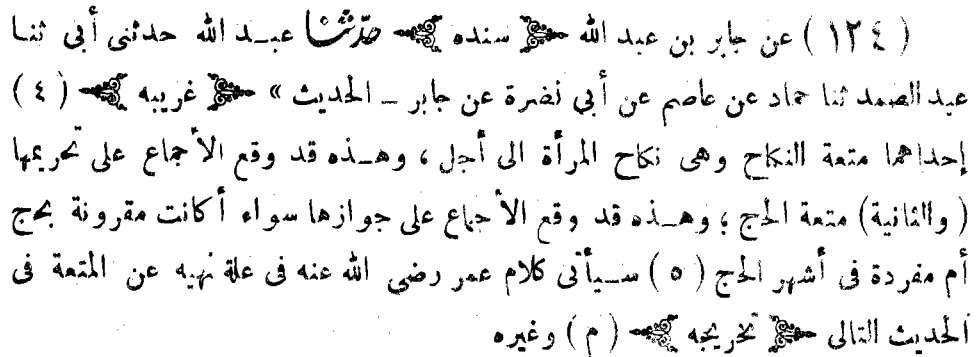 ( ١٢٤ ) عن جابر بن عبد الله ﴿ سنده ﴾ حدثنا عبـد الله حدثنى أبى ثنـا
عبد الصمد ثنا حماد عن عاصم عن أبي نضرة عن جابر ــ الحديث » ﴿ غريبه ﴾ ( ٤ )
إحداهما متعة النكاح وهى نكاح المرأة الى أجل ، وهـذه قد وقع الأجماع على تحريمها
( والثانية ) متعة الحج ؛ وهـذه قد وقع الأجماع على جوازها سواء أكانت مقرونة بحج
أم مفردة فى أشهر الحج ( ٥ ) سـيأتى كلام عمر رضى الله عنه فى علة نهيه عن المتعة فى
الحديث التالى ﴿ تخريجه ﴾ ( م ) وغيره